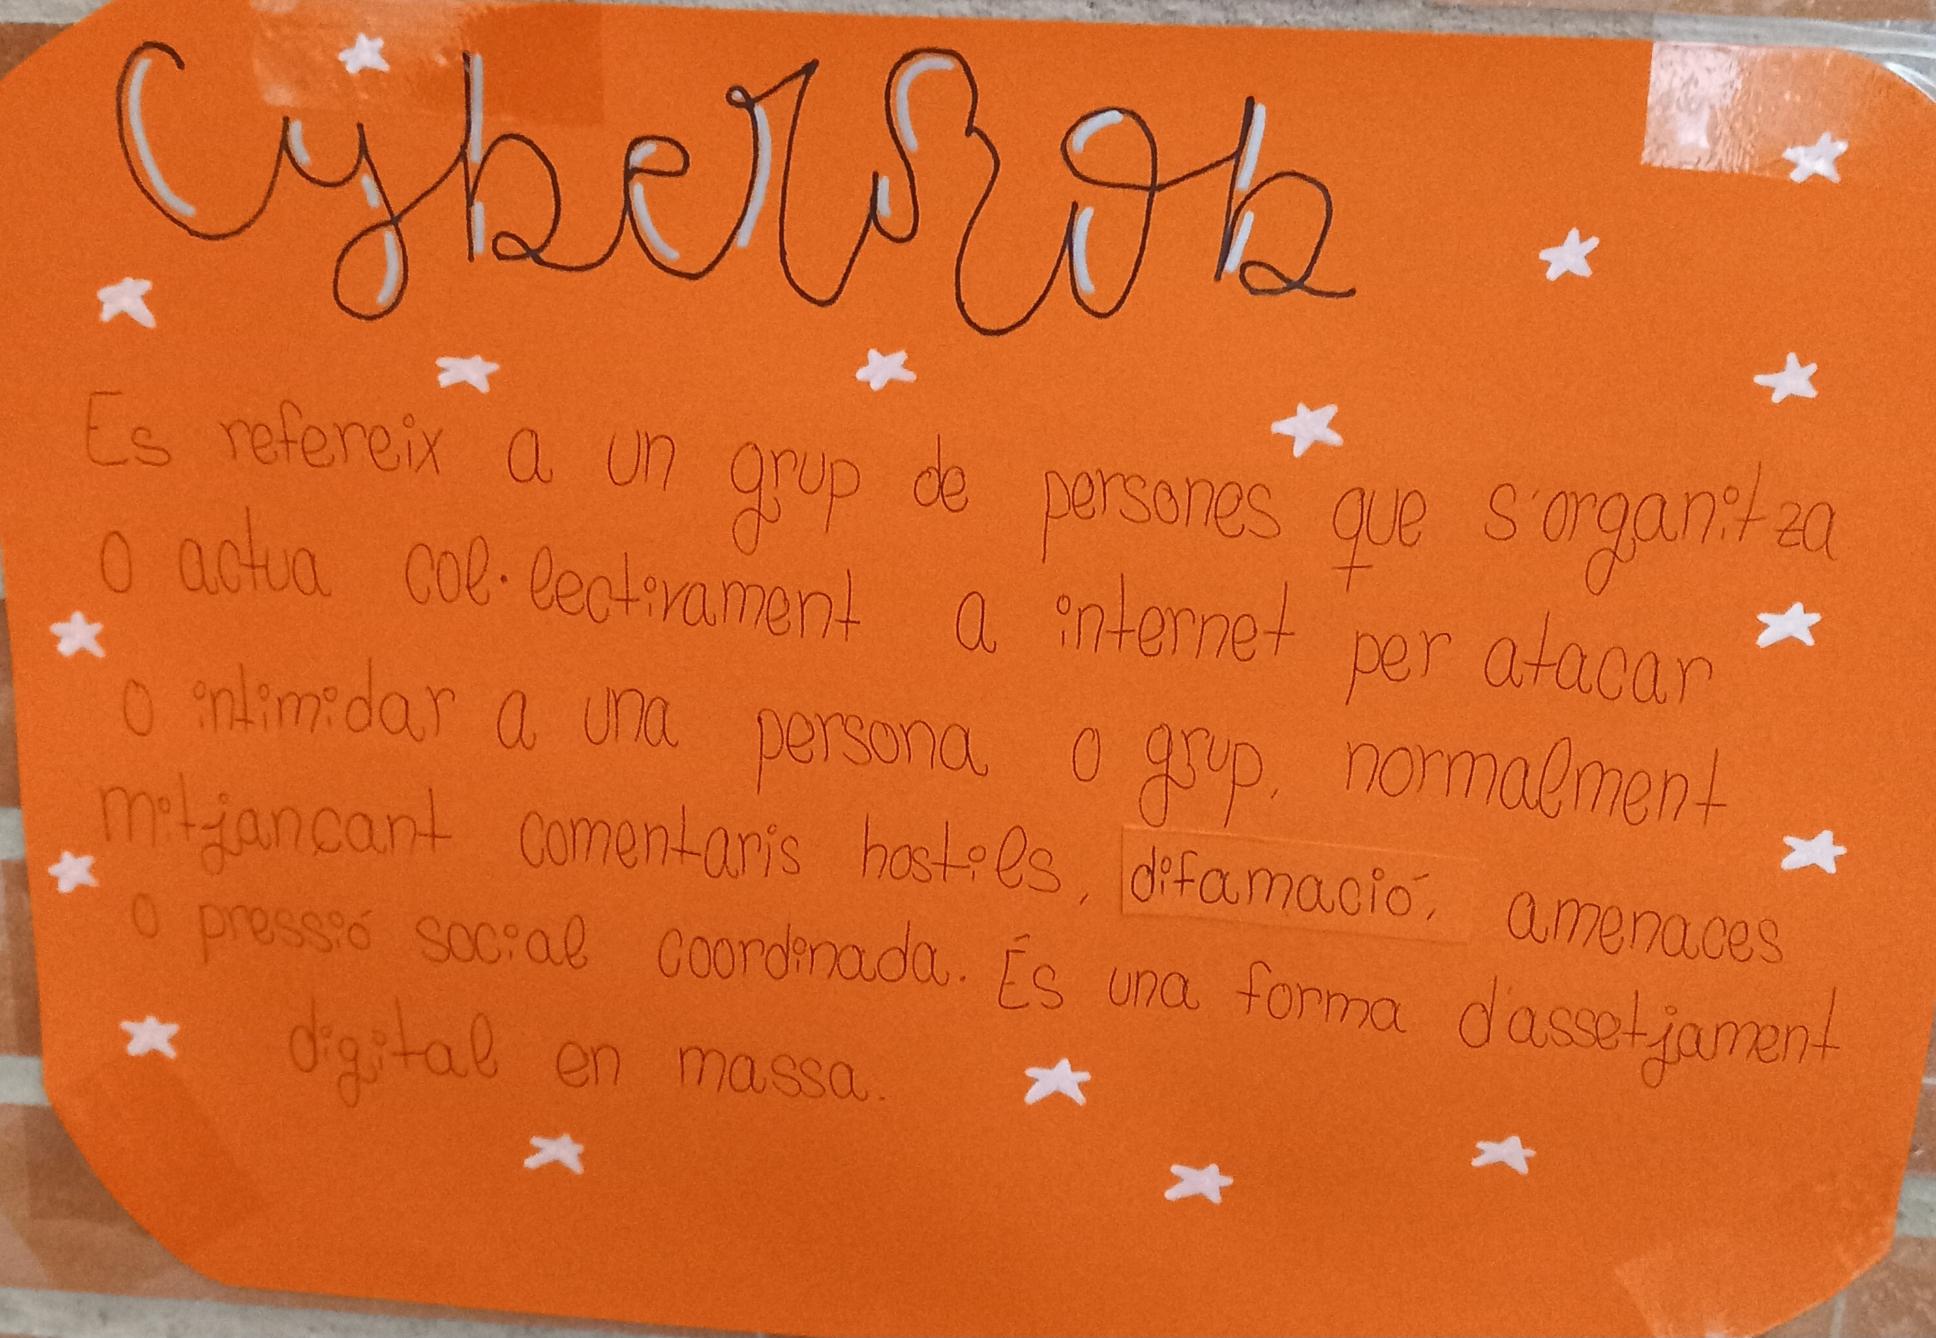 CyberMob
Es refereix a un grup de persones que s'organitza
o actua col·lectivament a internet per atacar
o intimidar a una persona o grup, normalment
mitjançant comentaris hostils, difamació, amenaces
o pressió social coordinada. És una forma d'assetjament
digital en massa.